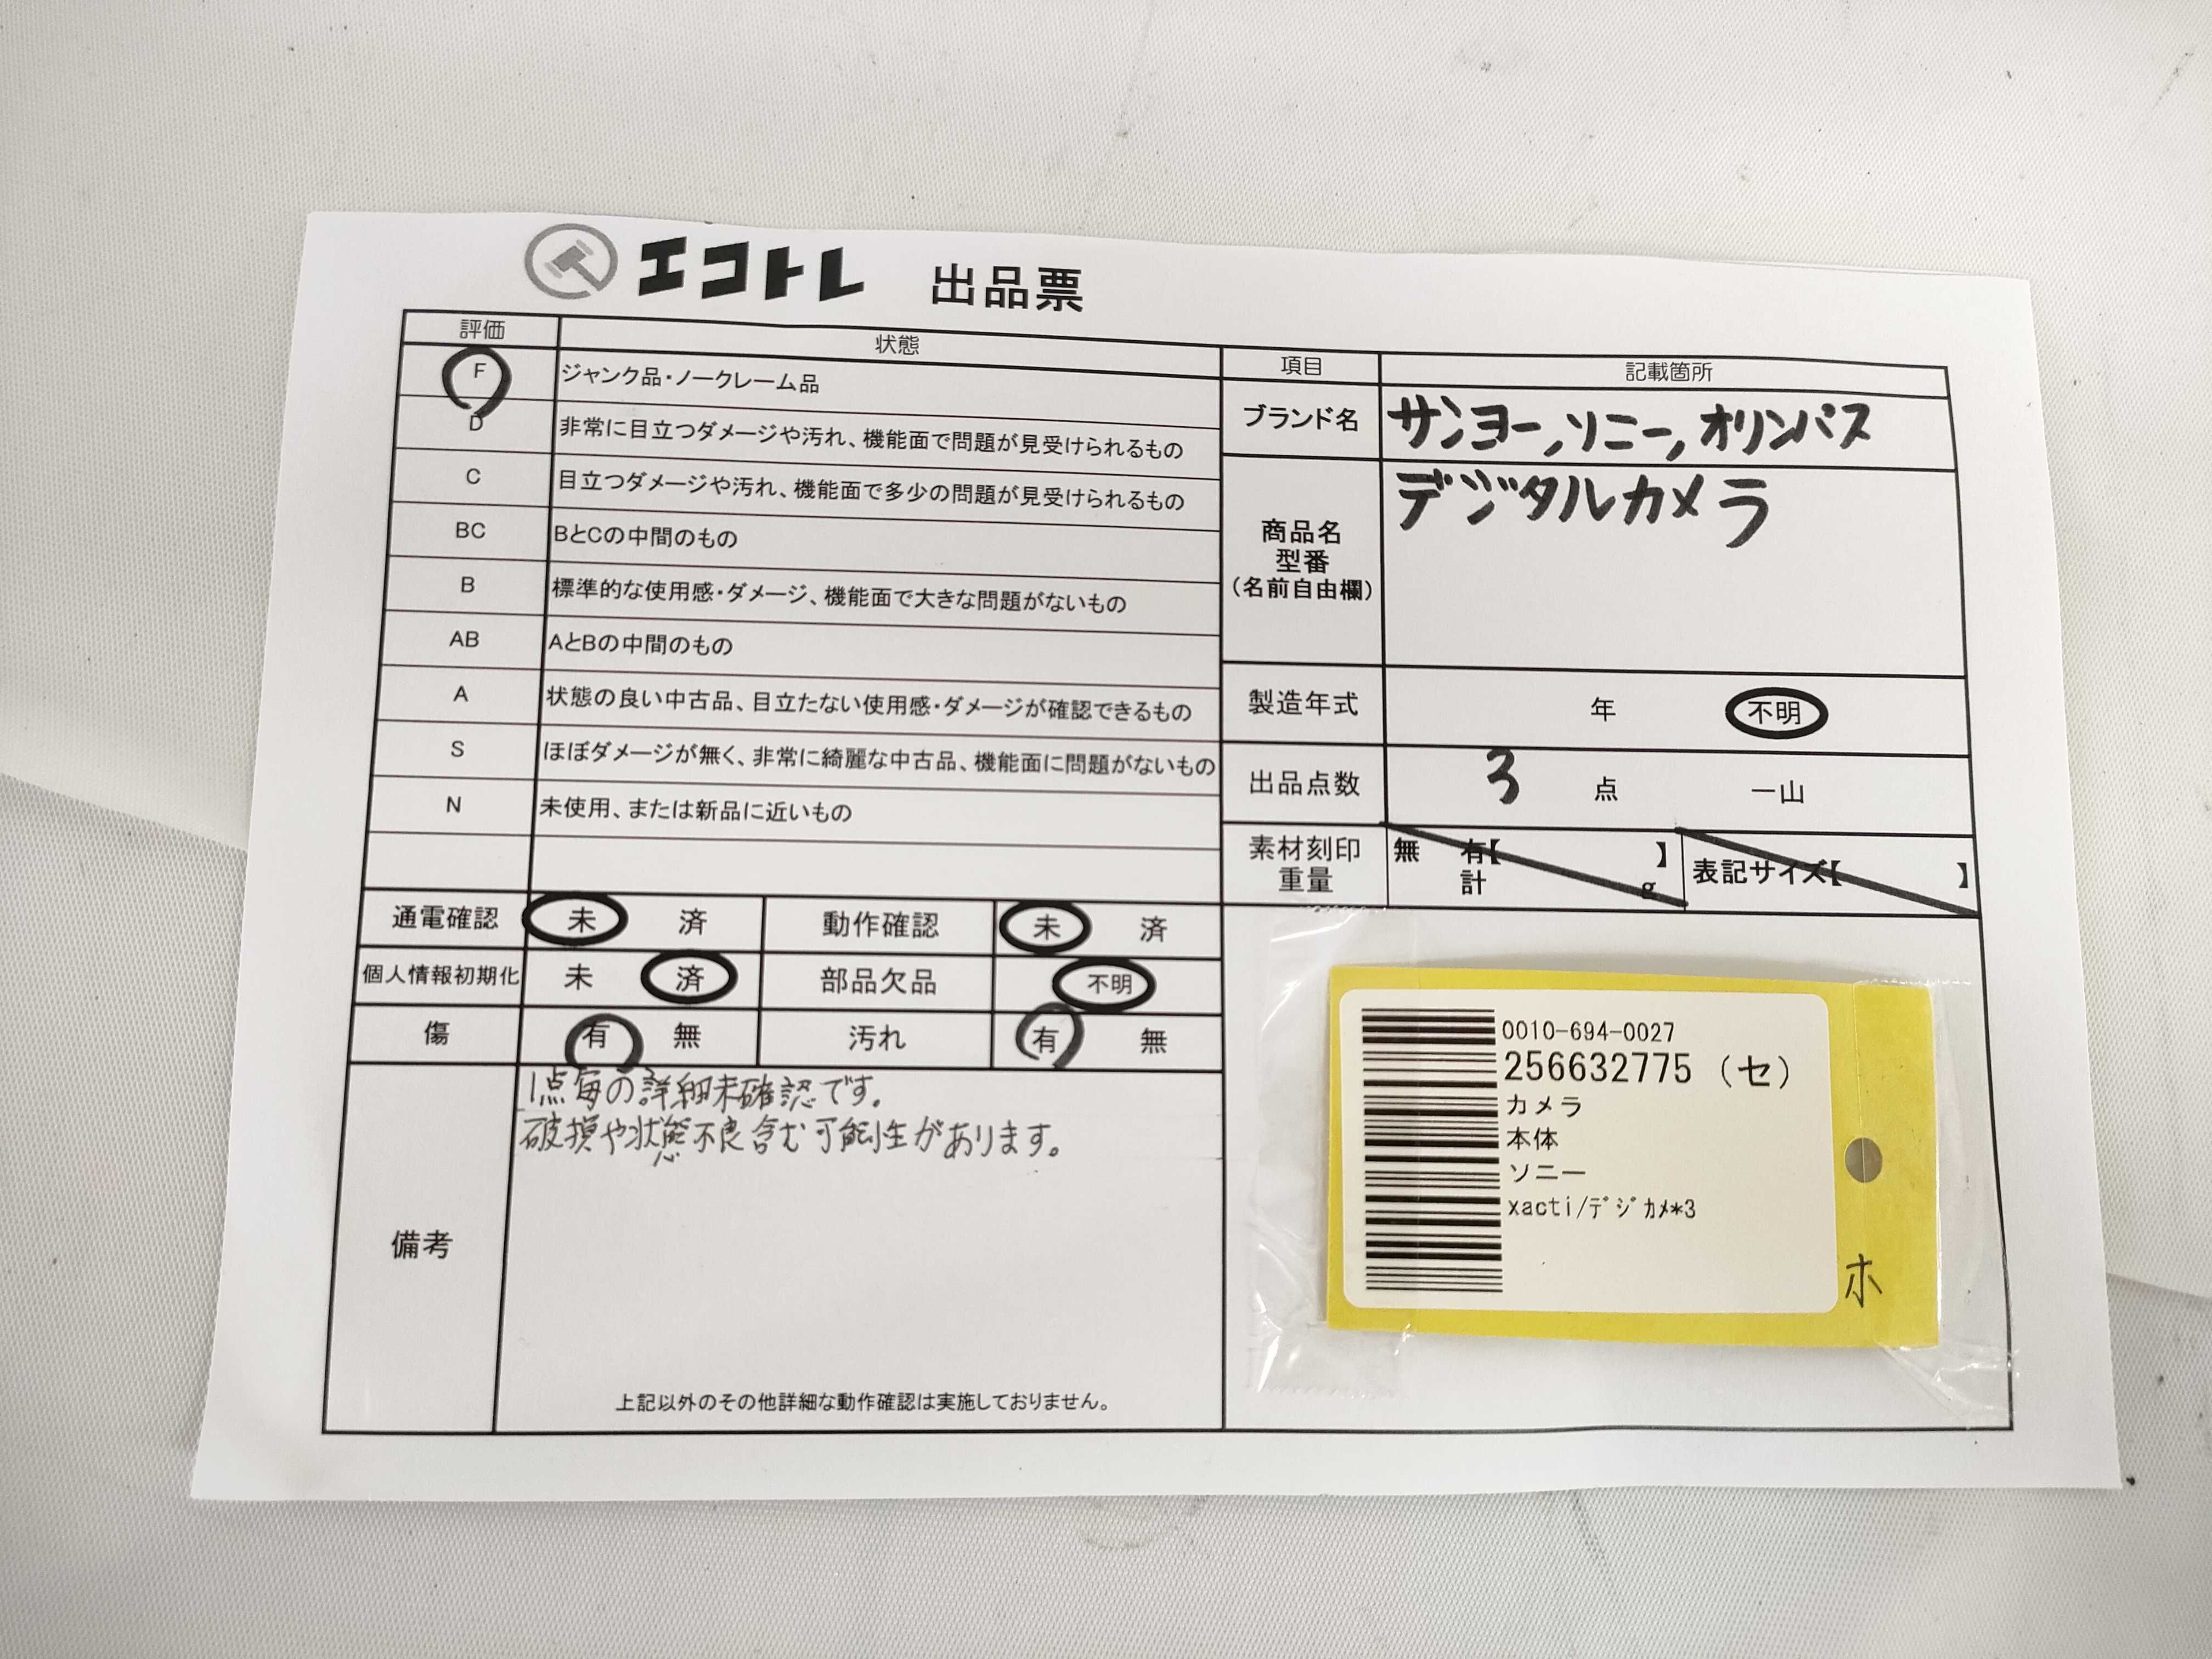 エコトレ 出品票
評価 状態
F ジャンク品・ノークレーム品
D 非常に目立つダメージや汚れ、機能面で問題が見受けられるもの
C 目立つダメージや汚れ、機能面で多少の問題が見受けられるもの
BC BとCの中間のもの
B 標準的な使用感・ダメージ、機能面で大きな問題がないもの
AB AとBの中間のもの
A 状態の良い中古品、目立たない使用感・ダメージが確認できるもの
S ほぼダメージが無く、非常に綺麗な中古品、機能面に問題がないもの
N 未使用、または新品に近いもの
項目 記載箇所
ブランド名 サンヨー,ソニー,オリンパス
商品名
型番
(名前自由欄)
デジタルカメラ
製造年式 年 不明
出品点数 3 点 一山
素材刻印 無 有【 】
重量 計 g
表記サイズ【 】
通電確認 未 済 動作確認 未 済
個人情報初期化 未 済 部品欠品 不明
傷 有 無 汚れ 有 無
備考
1点毎の詳細未確認です。
破損や状態不良含む可能性があります。
上記以外のその他詳細な動作確認は実施しておりません。
0010-694-0027
256632775 (セ)
カメラ
本体
ソニー
xacti/ﾃﾞｼﾞｶﾒ*3
ホ